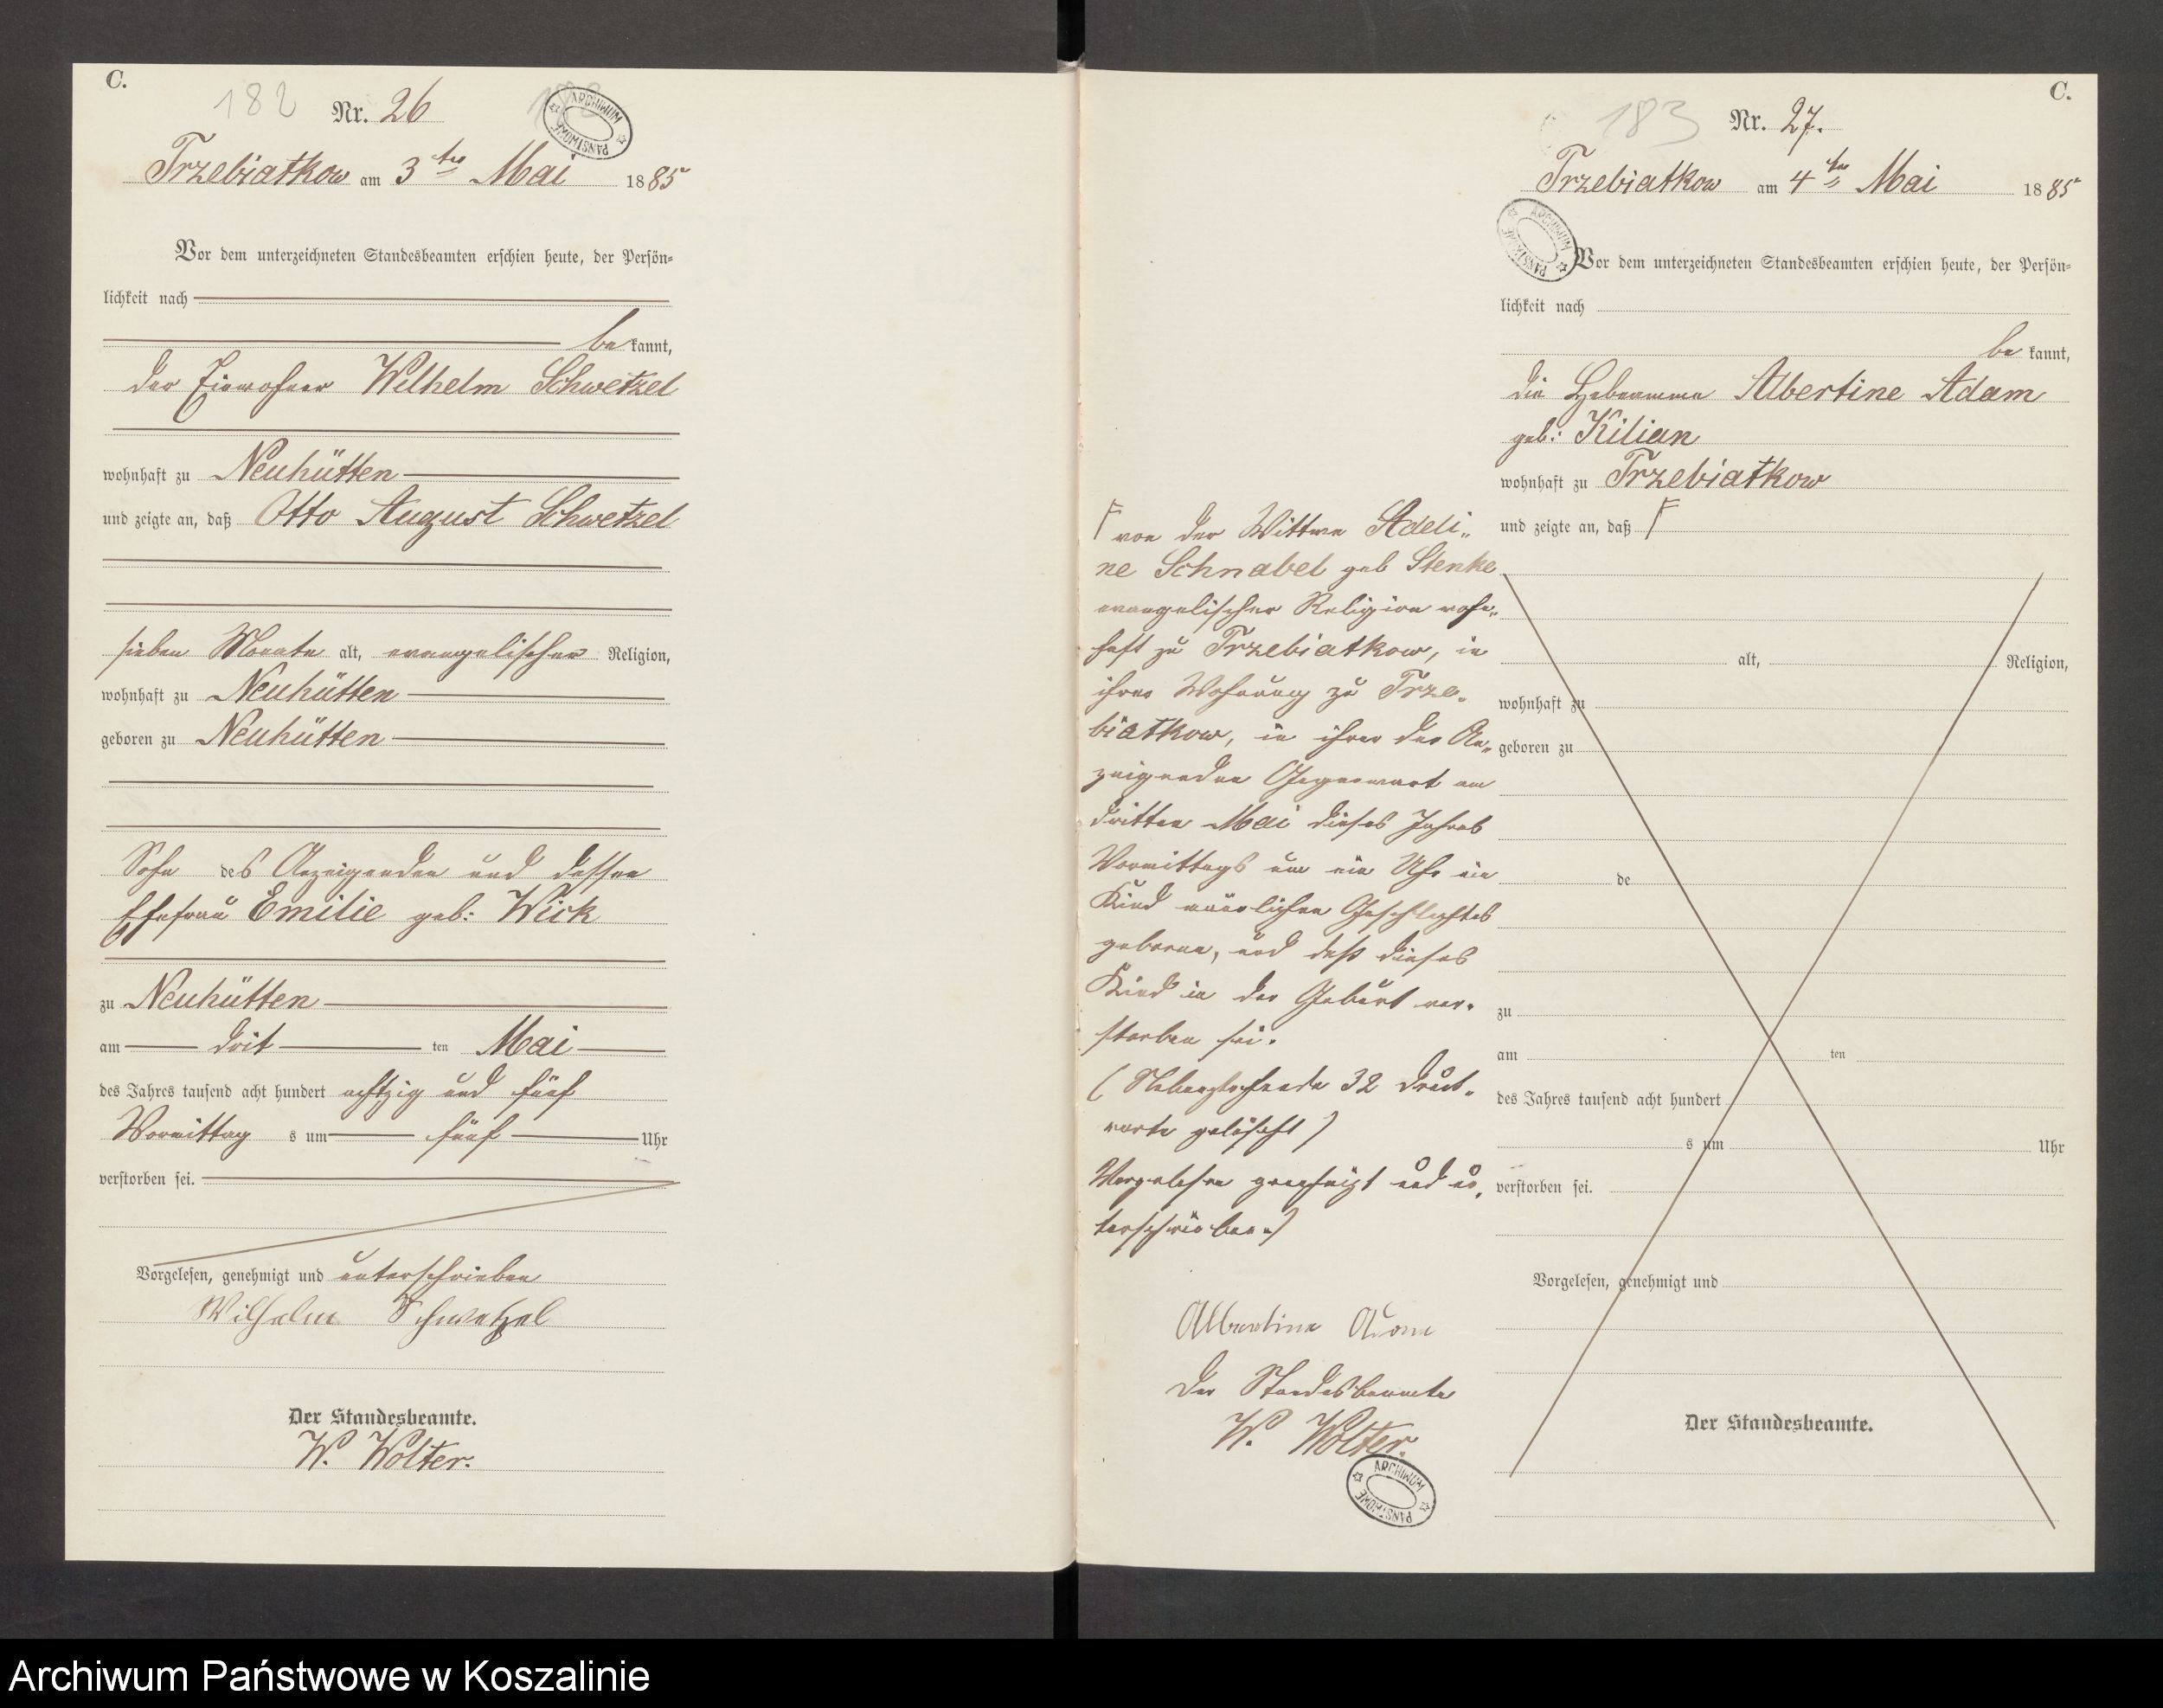 C.
182
Nr. 26
ARCHIWUM PAŃSTWOWE
Trzebiatkow am 3ten Mai 1885
Vor dem unterzeichneten Standesbeamten erschien heute, der Persön-
lichkeit nach
bekannt,
der Einwohner Wilhelm Schwetzel
wohnhaft zu Neuhütten
und zeigte an, daß Otto August Schwetzel
sieben Monate alt, evangelischer Religion,
wohnhaft zu Neuhütten
geboren zu Neuhütten
Sohn des Anzeigenden und dessen
Ehefrau Emilie geb: Wick
zu Neuhütten
am drit ten Mai
des Jahres tausend acht hundert achtzig und fünf
Vormittag s um fünf Uhr
verstorben sei.
Vorgelesen, genehmigt und unterschrieben
Wilhelm Schwetzel
Der Standesbeamte.
W. Wolter.
C.
183
Nr. 27.
Trzebiatkow am 4ten Mai 1885
ARCHIWUM PAŃSTWOWE
Vor dem unterzeichneten Standesbeamten erschien heute, der Persön-
lichkeit nach
bekannt,
die Hebamme Albertine Adam
geb: Kilian
wohnhaft zu Trzebiatkow
und zeigte an, daß F
F von der Wittwe Adeli-
ne Schnabel geb Stenke
evangelischer Religion wohn-
haft zu Trzebiatkow, in
ihrer Wohnung zu Trze-
biatkow, in ihrer der An-
zeigenden Gegenwart am
dritten Mai dieses Jahres
Vormittags um ein Uhr ein
Kind männlichen Geschlechtes
geboren, und daß dieses
Kind in der Geburt ver-
storben sei.
( Nebenstehende 32 Druck-
worte gelöscht )
Vorgelesen genehmigt und un-
terschrieben.)
Albertine Adam
Der Standesbeamte
W. Wolter.
ARCHIWUM PAŃSTWOWE
alt, Religion,
wohnhaft zu
geboren zu
de
zu
am ten
des Jahres tausend acht hundert
s um Uhr
verstorben sei.
Vorgelesen, genehmigt und
Der Standesbeamte.
Archiwum Państwowe w Koszalinie